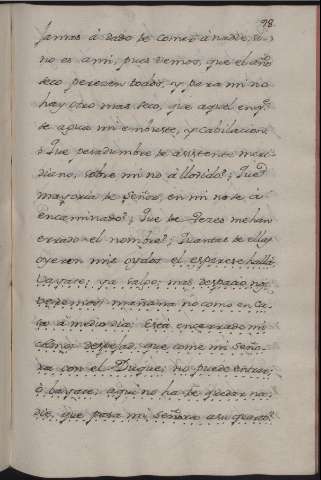 98.
Jamas á dado de comer á nadie, si
no es a mi, pues vemos, que el año
seco perecen todos, y para mi no
hay otro mas seco, que aquel en qe.
te apua mi embuste, y cabilacion
Que pesadumbre de asistente meri
diano, sobre mi no á llovido?; Que
mayoria de Señor, en mi no se á
encaminado?; Que de vezes me han
errado el nombre?; Quantas de ellas
oyeron mis oydos el esperese halli
vayase; ya salgo; mas despacio nos
veremos; mañana no como en ca-
sa á medio dia; Está encerrado mi
despejad, que come mi Seño-
ra con el Duque; no puede entrar,
ó vayase, aqui no ha de quedar na-
die, que pasa mi señora a su quarto?